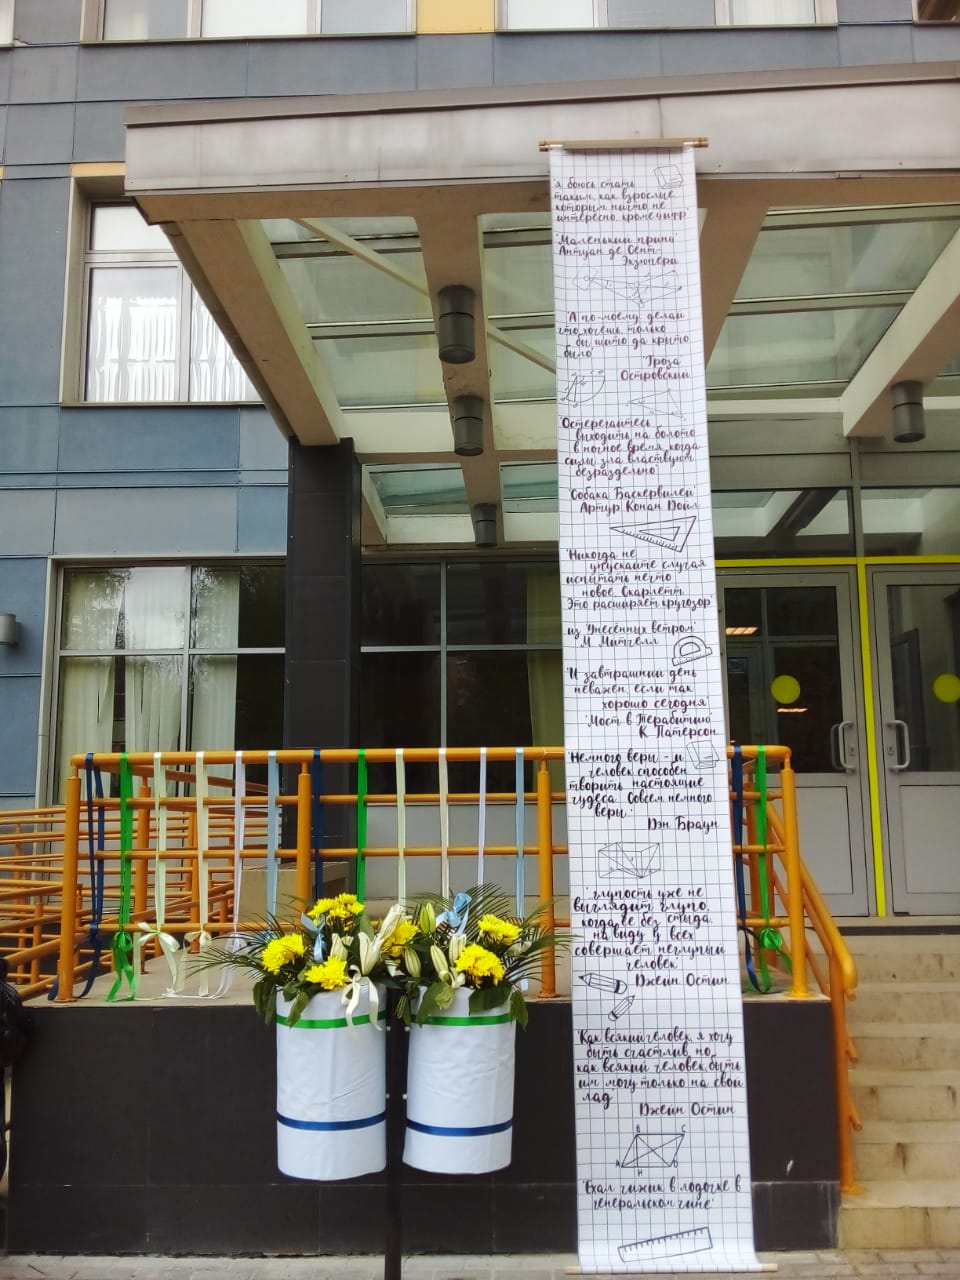 Я боюсь стать
таким, как взрослые,
которым ничто не
интересно, кроме цифр
"Маленький принц"
Антуан де Сент-
Экзюпери
"А по-моему, делай
что хочешь, только
бы шито да крыто
было"
"Гроза"
Островский
"Остерегайтесь
выходить на болото
в ночное время, когда
силы зла властвуют
безраздельно"
"Собака Баскервилей"
Артур Конан Дойл
"Никогда не
упускайте случая
испытать нечто
новое, Скарлетт.
Это расширяет кругозор"
из "Унесённых ветром"
М. Митчелл
"И завтрашний день
неважен, если так
хорошо сегодня"
"Мост в Терабитию"
К. Патерсон
"Немного веры - и
человек способен
творить настоящие
чудеса. Совсем немного
веры."
Дэн Браун
"глупость уже не
выглядит глупо,
когда её без стыда,
на виду у всех
совершает неглупый
человек"
Джейн Остин
"Как всякий человек, я хочу
быть счастлив, но,
как всякий человек, быть
им могу только на свой
лад"
Джейн Остин
B C
A D
H
"Ехал чижик в лодочке в
генеральском чине"